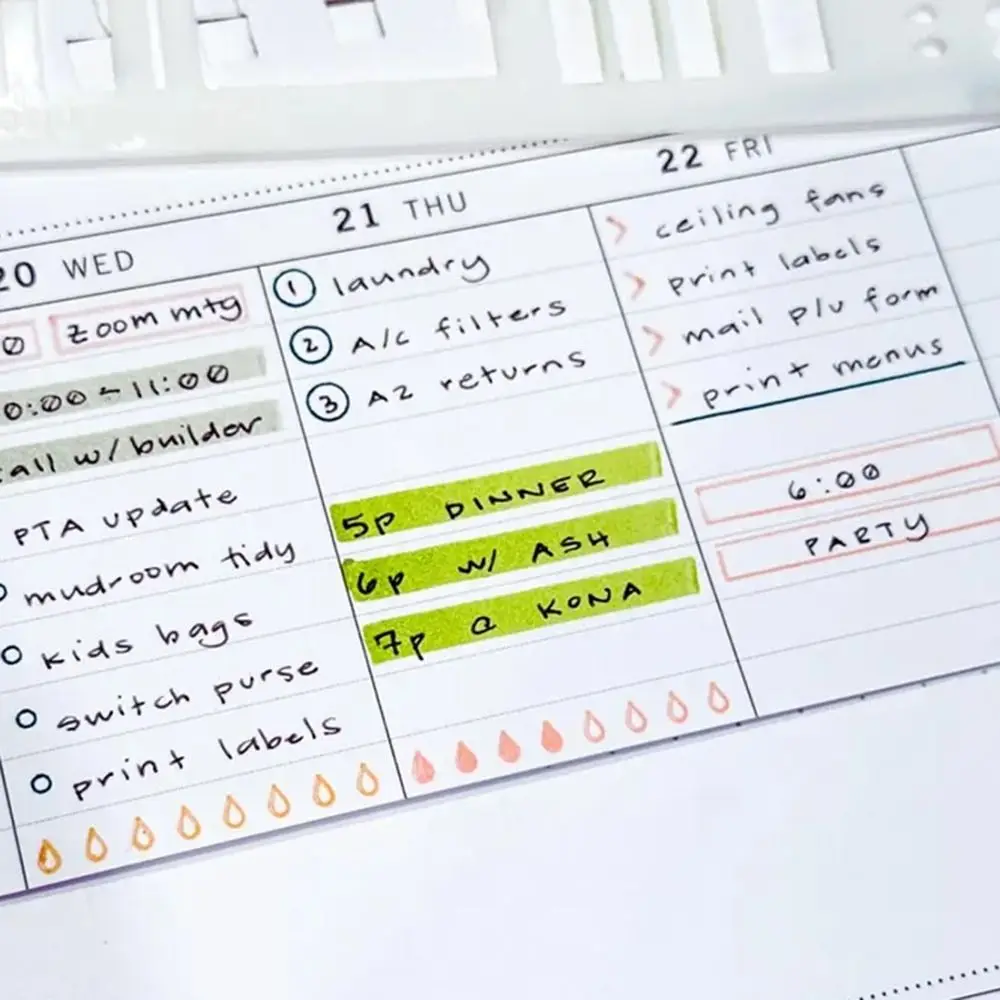 20 WED
0 zoom mtg
0:00 - 11:00
all w/ builder
PTA update
mudroom tidy
kids bags
switch purse
print labels
21 THU
1 laundry
2 A/C filters
3 AZ returns
5p DINNER
6p w/ ASH
7p @ KONA
22 FRI
> ceiling fans
> print labels
> mail p/u form
> print menus
6:00
PARTY